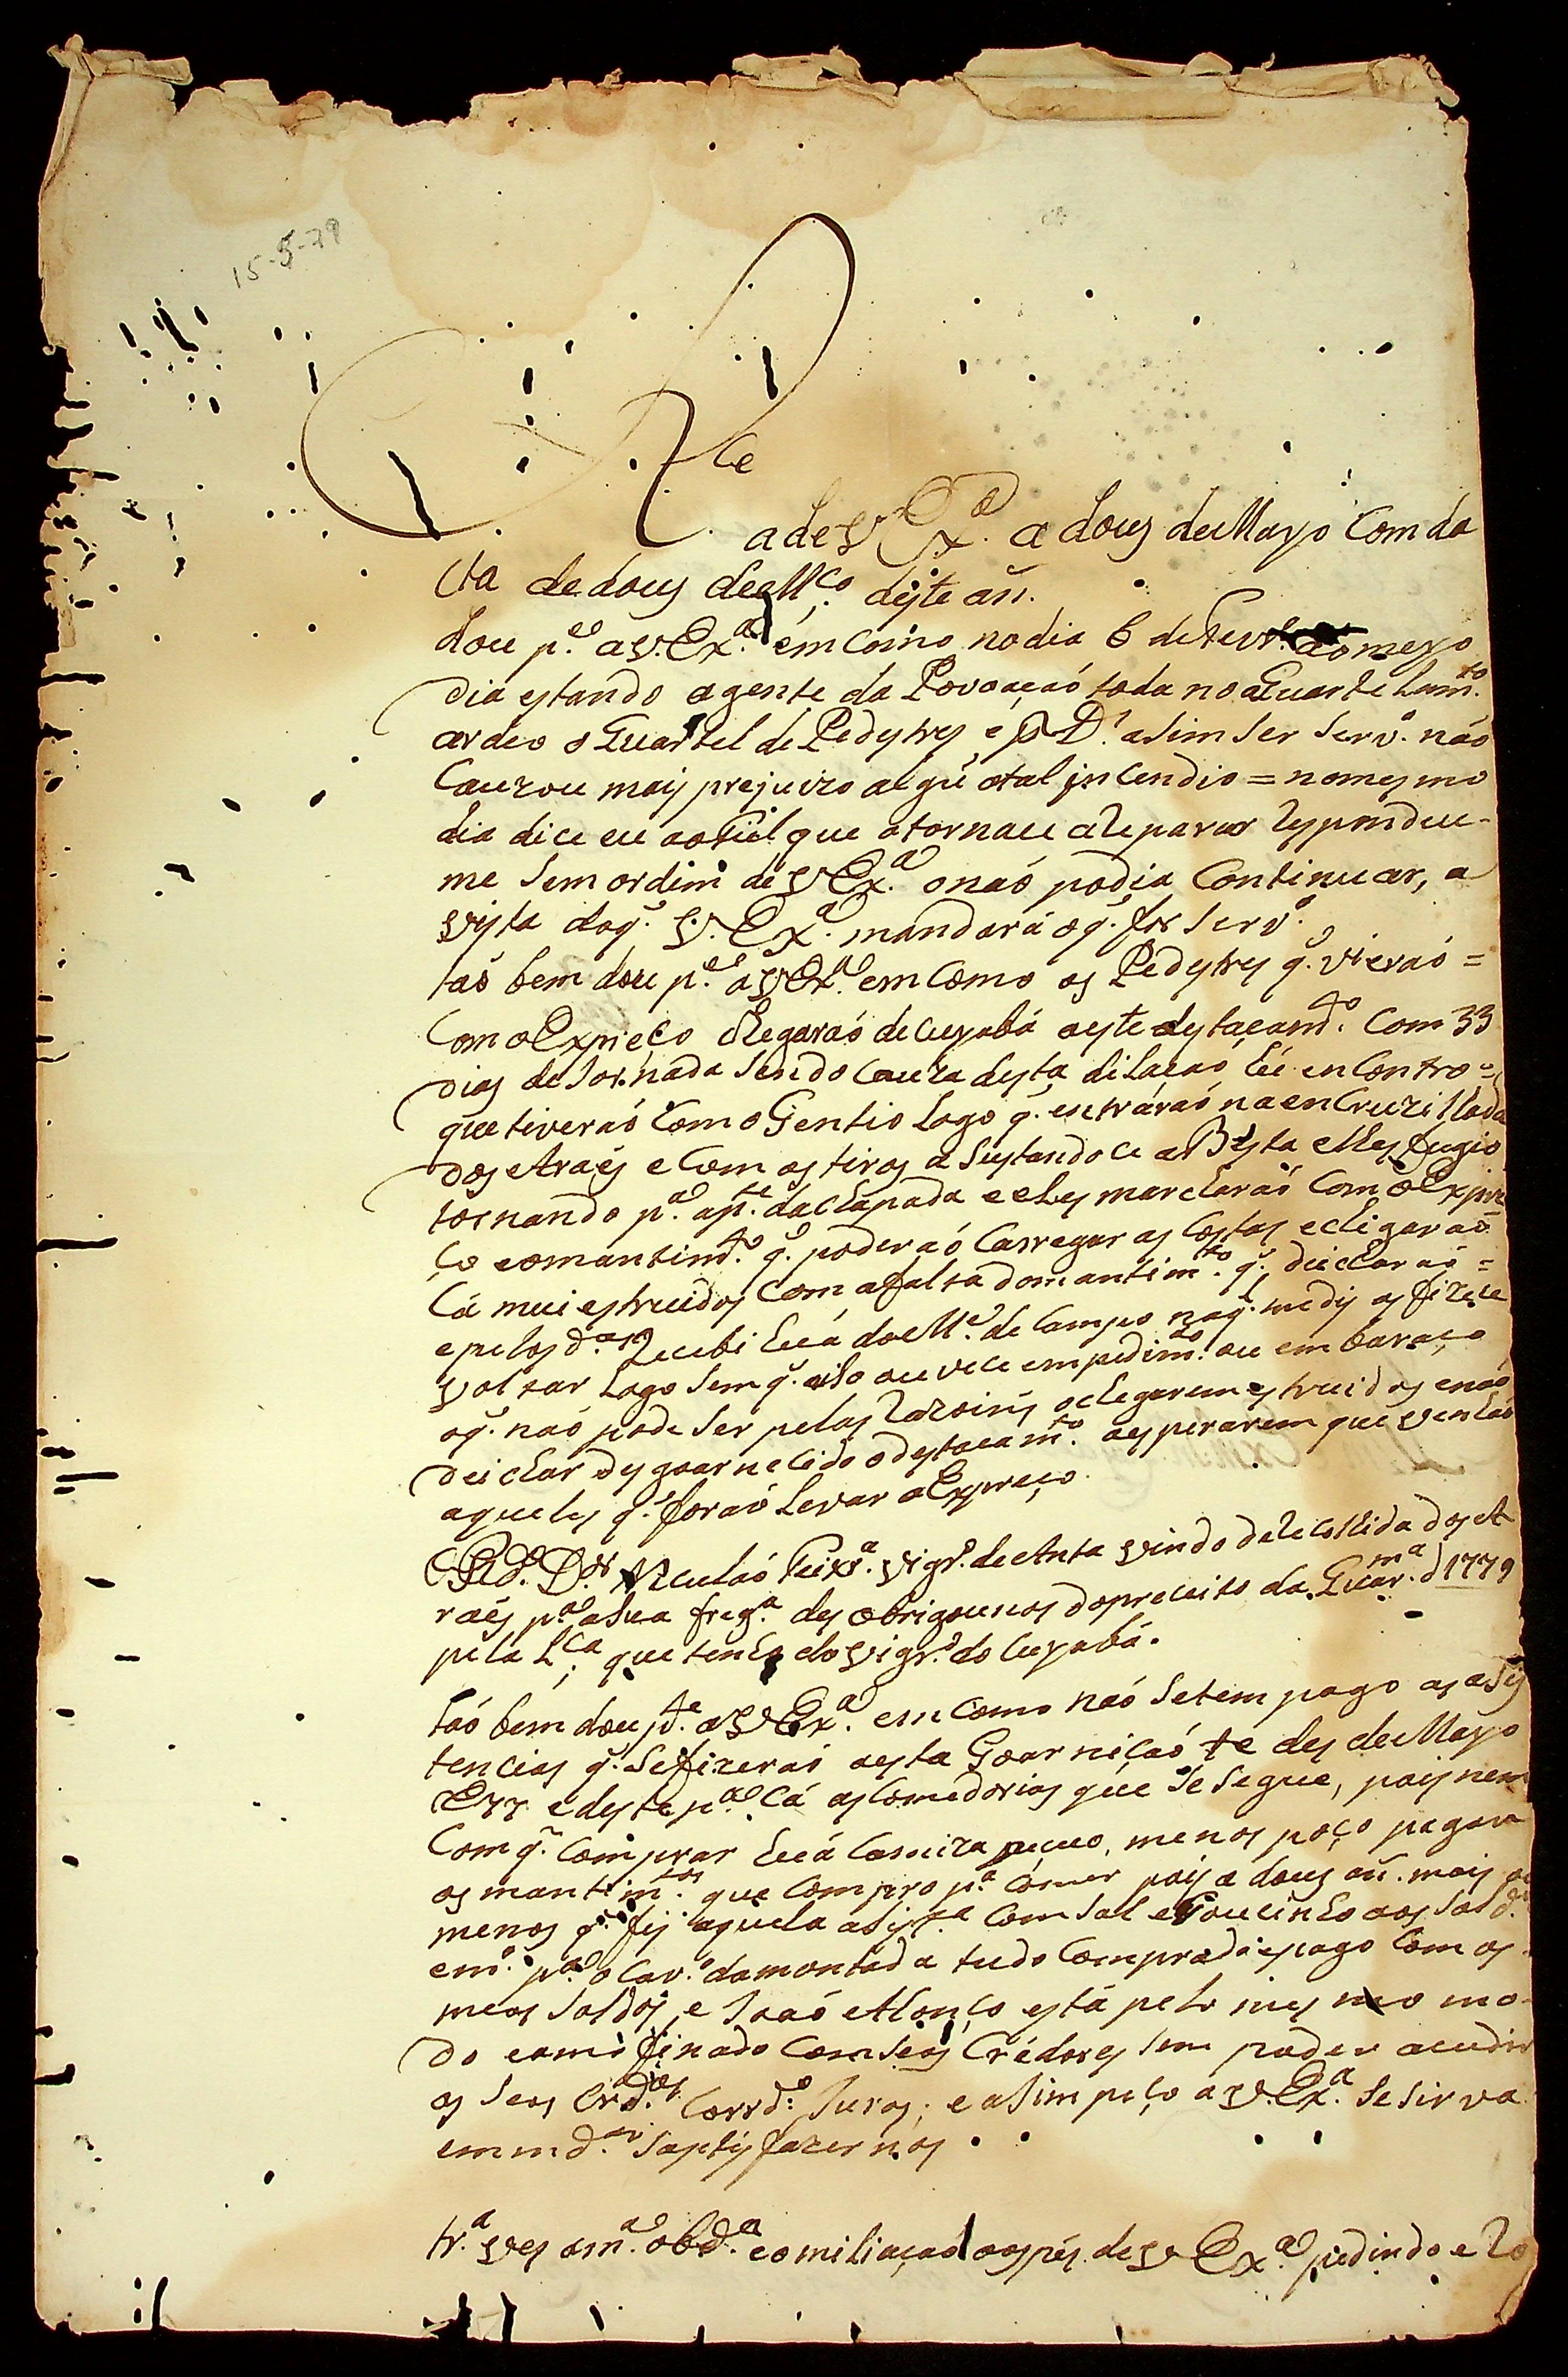 15-5-79
R.ce
a de V Ex.a a dous de Mayo Com da
cta de dous de M.ço deste añ.
dou p.e a V.Ex.a em como no dia 6 de Fevr.o ao meyo
dia estando agente da Povoaçaó toda no aquartelam.to
ardeo o Quartel de Pedestres, e p.r D.s asim ser Serv.o naó
Cauzou mais prejuizo algũ o tal incendio = nomesmo
dia dice eu ao Fiel que o tornace a Reparar Respondeu-
me Sem ordem de V Ex.a o naó podia Continuar, a
vista doq. V. Ex.a mandará oq. for Serv.o
taó bem dou p.e a V Ex.a em como os Pedestres q. vieraó =
Com o Expreço Chegaraó de Cuyabá aeste destacam.to Com 33
dias de Jornada Sendo Cauza desta dilaçaó hũ encontro =
que tiveraó Com o Gentio Logo q. entráraó na encruzilhada
dos Araés e Com os tiros asustandoce a Besta elles fugio
tornando p.a ap.te da Chapada e eles marcharaó Com o Expre
ço eomantim.to q. poderaó Carregar as Costas e chigaraó
Cá mui estruidos Com afalta domantim.to q. deicharaó =
e pelos d.os Recebi huá do M.e de Campo naq. me dis os fizece
voltar Logo Sem q. niso ouvece empedim.to ou embaraço
oq. naó pode Ser pelas Razoins de chegarem estruidos enaó
deichar desguarnecido o destacam.to aesperarem que venhaó
aqueles q. foraó Levar o Expreço.
O R.do D.or Niculáo Teixr.a vigr.o de Anta vindo de Recolhida dos A
raés p.a asua freg.a desobrigounos dopreceito da Quar.ma d 1779
pela L.ca que tenho do vigr.o do Cuyabá.
taó bem dou p.te a V Ex.a em como naó Setem pago as asis
tencias q. Sefizeraó aesta Goarniçaó te des de Mayo
E77 e deste p.a Cá as Comedorias que Se Segue, pois nem
Com q. Comprar huá Camiza peuo, menos poço pagar
os mantim.tos que Compro p.a Comer pois a dous añ. mais ou
menos q. fis aquela asist.a Com Sal e Toucinho aos Sold.os
em.o p.a o Cav.o damontad a tudo Comprado e pago Com os
meus Soldos, e Joaó Afonço está pelo mesmo mo-
do eomo finado Com Seos Crédores Sem poder acudir
os Seos Crd.res Corrd.o Juros; e asim peço a V.Ex.a Se Sirva
em md.ar Saptisfazernos.
tr.a ves am.a obd.a eomiliaçaó aos pés de V Ex.a pedindo e Ro